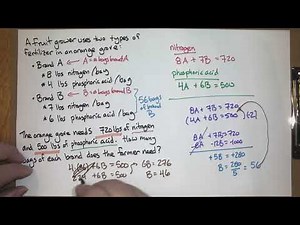 A fruit grower uses two types of
fertilizer in an orange grove:
• Brand A ← A = # bags brand A
• 8 lbs nitrogen/bag
• 4 lbs phosphoric acid/bag
• Brand B ← B = # bags brand B
• 7 lbs nitrogen/bag
• 6 lbs phosphoric acid/bag
56 bags of
brand
B
The orange grove needs 720 lbs of nitrogen
and 500 lbs of phosphoric acid. How many
bags of each brand does the farmer need?
+ 6B = 500
+ 6B = 500
6B = 276
B = 46
nitrogen
8A + 7B = 720
phosphoric acid
4A + 6B = 500
8A + 7B = 720
(4A + 6B = 500)(-2)
8A + 7B = 720
-8A - 12B = -1000
+5B = +280
B = 280/5 = 56